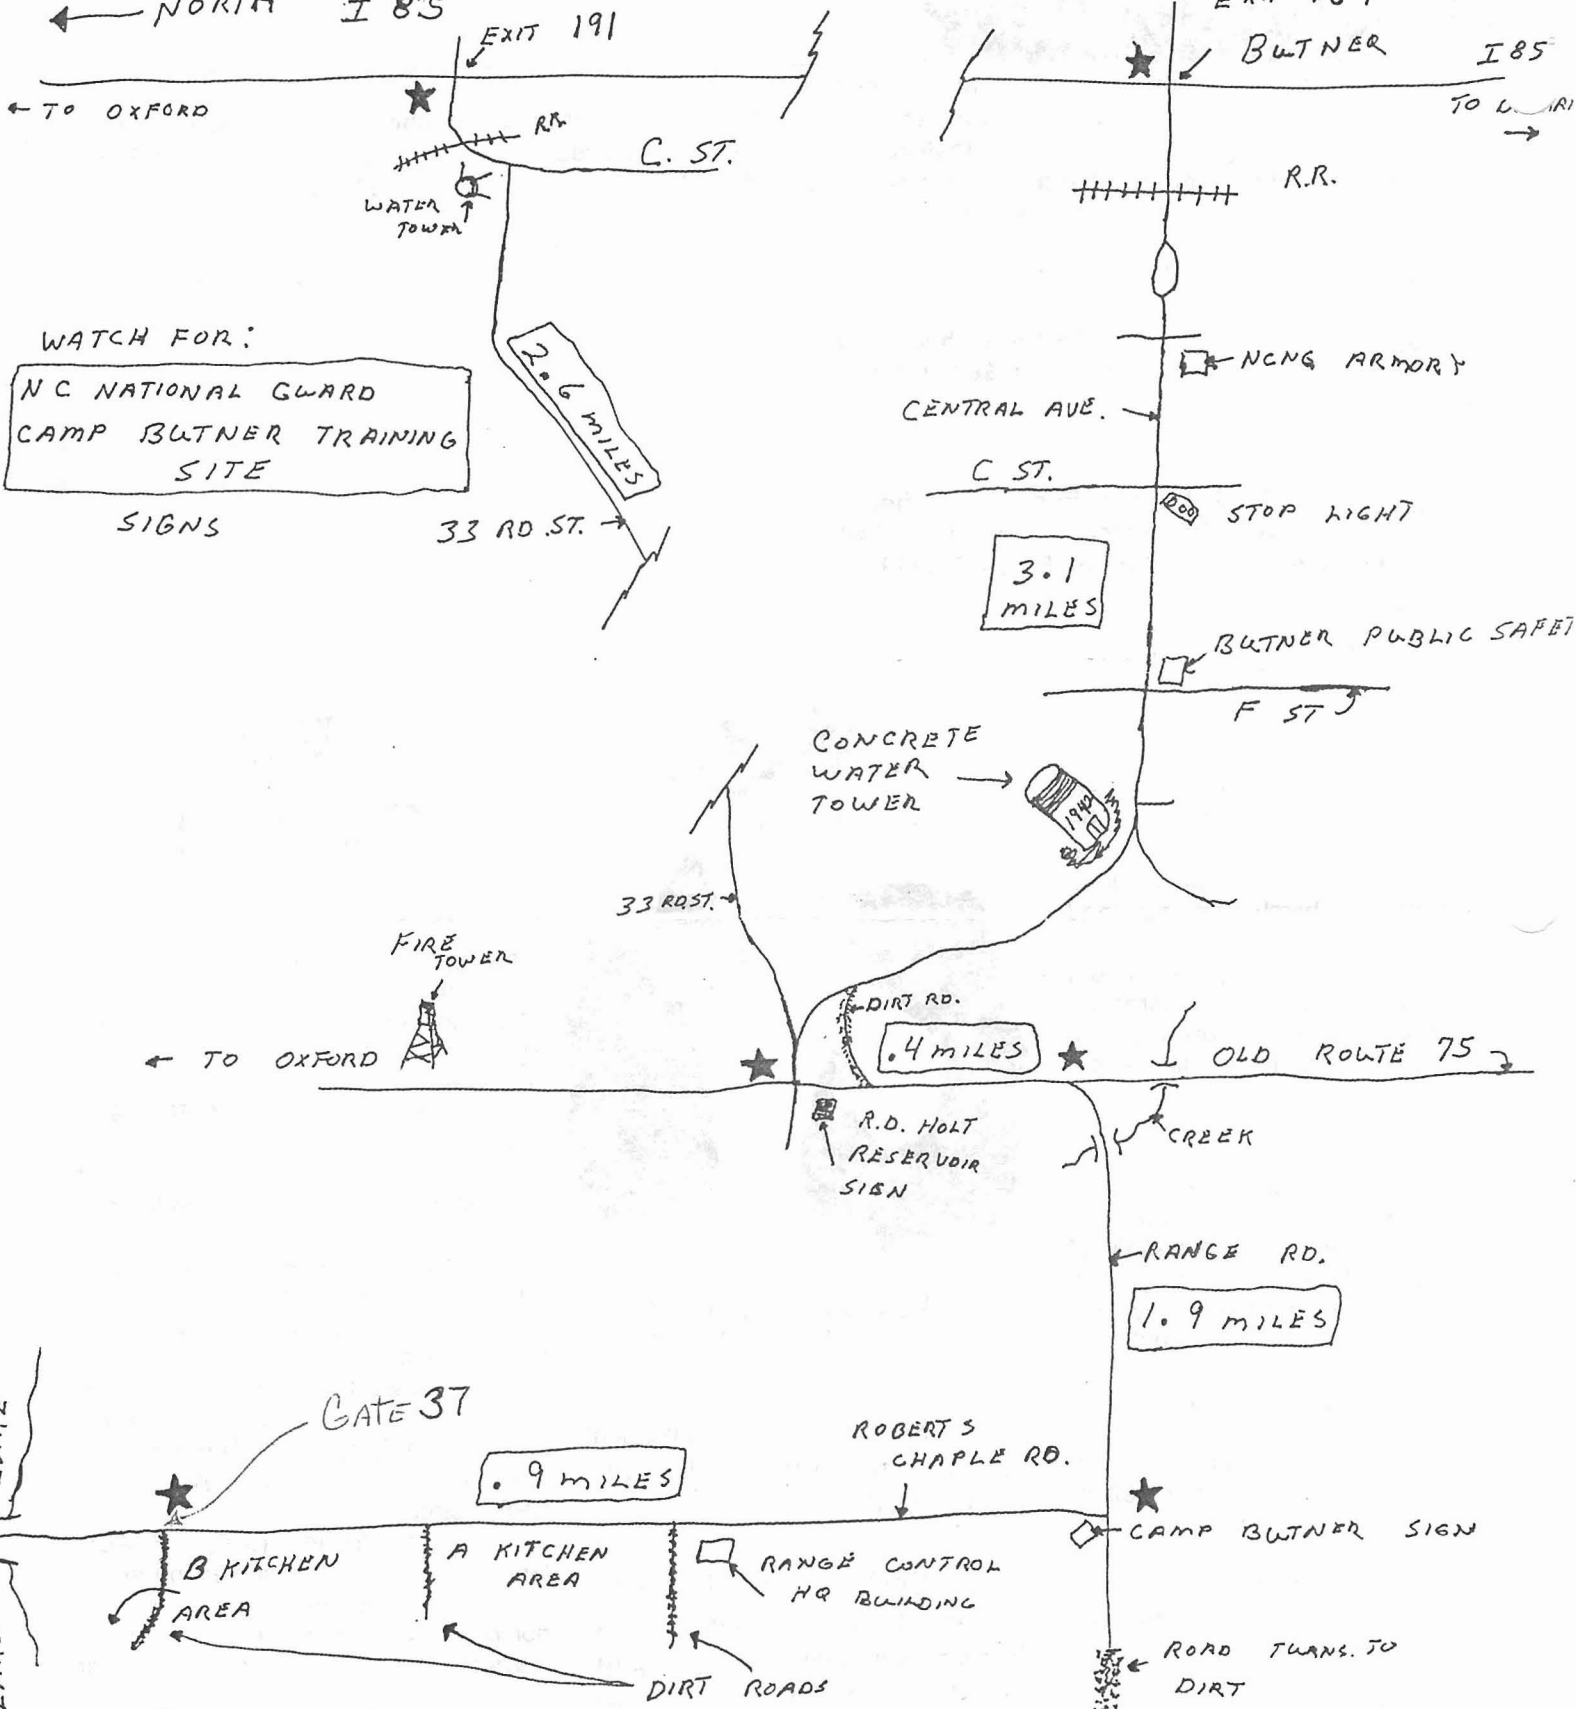 NORTH I 85
EXIT 191
← TO OXFORD
R.R.
C. ST.
WATER
TOWER
WATCH FOR:
NC NATIONAL GUARD
CAMP BUTNER TRAINING
SITE
SIGNS
2.6 MILES
33 RD. ST.
BUTNER
I 85
TO
R.R.
NCNG ARMORY
CENTRAL AVE.
C ST.
STOP LIGHT
3.1
MILES
BUTNER PUBLIC
F ST
CONCRETE
WATER
TOWER
1942
33 RD.ST.
FIRE
TOWER
DIRT RD.
.4 MILES
← TO OXFORD
OLD ROUTE 75
R.D. HOLT
RESERVOIR
SIGN
CREEK
RANGE RD.
1.9 MILES
GATE 37
.9 MILES
ROBERTS
CHAPLE RD.
CAMP BUTNER SIGN
B KITCHEN
AREA
A KITCHEN
AREA
RANGE CONTROL
HQ BUILDING
DIRT ROADS
ROAD TURNS. TO
DIRT